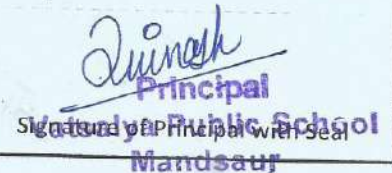 Principal
Vatsalya Public School
Signature of Principal with Seal
Mandsaur